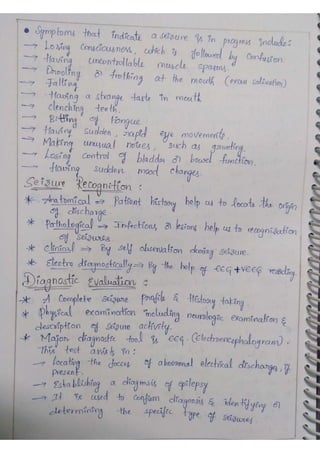 • Symptoms that indicate a seizure is in progress include:
→ Losing consciousness, which is followed by confusion.
→ Having uncontrollable muscle spasms.
→ Drooling or frothing at the mouth (excess salivation)
→ Falling
→ Having a strange taste in mouth
→ clenching teeth.
→ Biting of tongue.
→ Having sudden, rapid eye movements.
→ Making unusual noises, such as grunting.
→ Losing control of bladder or bowel function.
Having sudden mood changes.
Seizure Recognition :
* Anatomical ⇒ Patient history help us to locate the origin
of discharge
* Pathological → Infections & lesions help us to recognisation
of seizures
* Clinical → By self observation during seizure.
* Electro diagnostically → By the help of EEG + VEEG reading.
Diagnostic Evaluation :
* A complete seizure profile & History taking
* Physical examination including neurologic examination &
description of seizure activity.
* Major diagnostic tool is EEG. (Electroencephalogram).
This test assists in :
→ locating the focus of abnormal electrical discharge, if
present.
→ Establishing a diagnosis of epilepsy
→ It is used to confirm diagnosis & identifying or
determining the specific type of seizures.